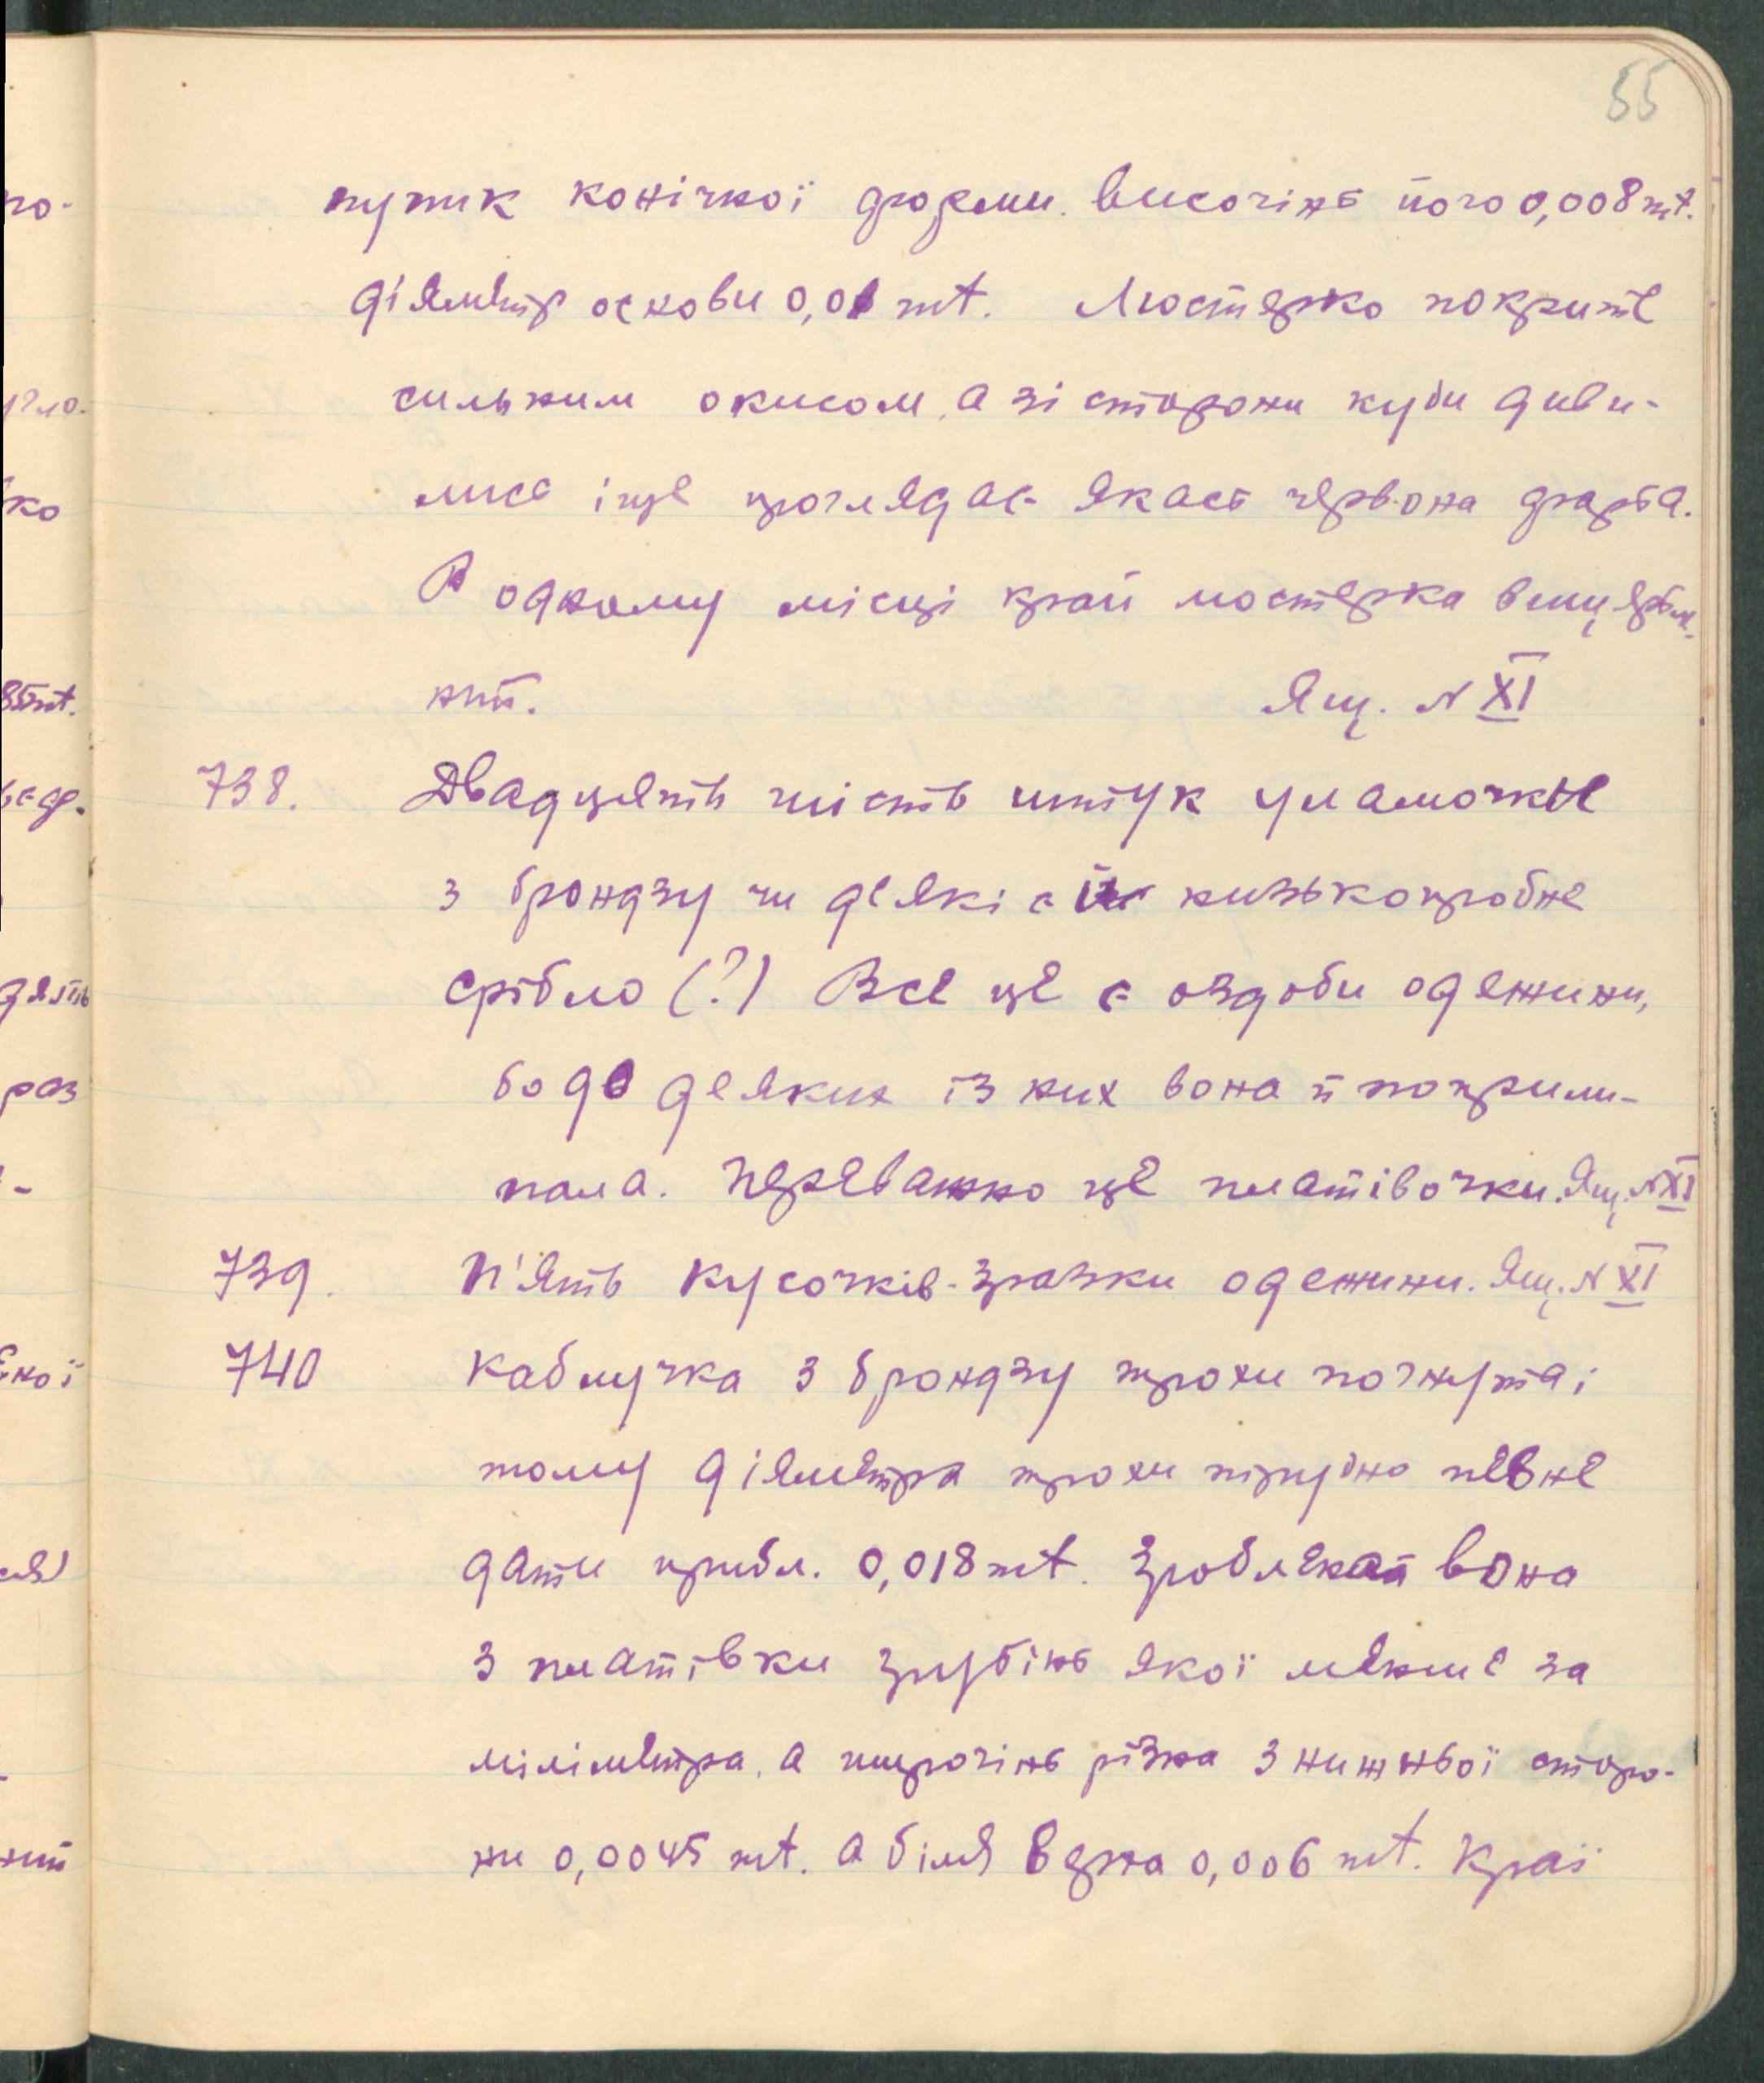 55
пупик конічної форми. Височінь його 0,008 mt.
діяметр основи 0,01 mt. Люстерко покрите
сильним окисом, а зі сторони куди диви-
лись іще проглядає якась червона фарба.
В одному місці край люстерка вищерблен-
ний. Ящ. N XI
738. Двадцять шість штук уламочків
з брондзу чи деякі є низькопробне
срібло (?) Все це є оздоби одежини,
бо до деяких із них вона й поприли-
пала. Переважно це платівочки. Ящ. N XI
739. П'ять кусочків-зразки одежини. Ящ. N XI
740 Каблучка з брондзу трохи погнута і
тому діяметра трохи трудно певне
дати прибл. 0,018 mt. Зроблена вона
з платівки згрубінь якої менше за
міліметра, а широчінь різна з нижньої сторо-
ни 0,0045 mt. а біля 0,006 mt. Краї
по-
ко
85 mt.
дять
раз
-
ної
ний